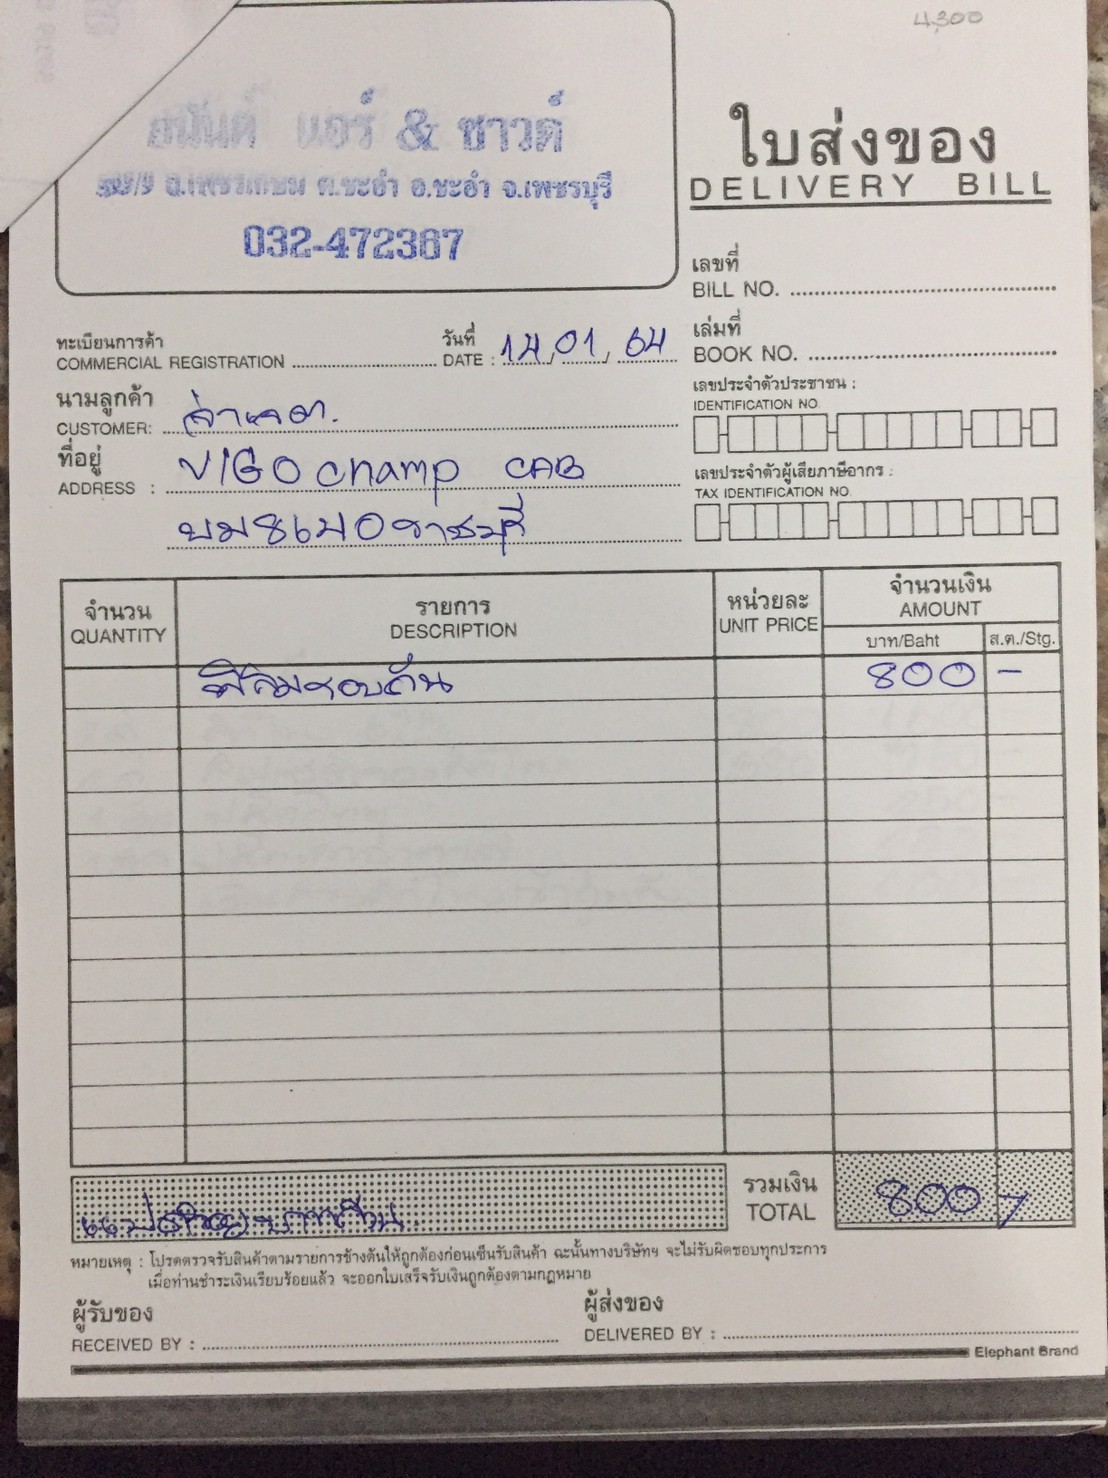 4,300
อนันต์ แอร์ & ซาวด์
ถ.เพชรเกษม ต.ชะอำ อ.ชะอำ จ.เพชรบุรี
032-472367
ใบส่งของ
DELIVERY BILL
เลขที่
BILL NO.
ทะเบียนการค้า
COMMERCIAL REGISTRATION
วันที่
DATE : 14, 01, 64
เล่มที่
BOOK NO.
นามลูกค้า
CUSTOMER:
เลขประจำตัวประชาชน :
IDENTIFICATION NO.
ที่อยู่
ADDRESS : VIGO champ CAB
เลขประจำตัวผู้เสียภาษีอากร :
TAX IDENTIFICATION NO.
ราชบุรี
จำนวน
QUANTITY
รายการ
DESCRIPTION
หน่วยละ
UNIT PRICE
จำนวนเงิน
AMOUNT
บาท/Baht
ส.ต./Stg.
ฟิล์มรอบคัน 800 -
แปดร้อยบาทถ้วน
รวมเงิน
TOTAL
800 /
หมายเหตุ : โปรดตรวจรับสินค้าตามรายการข้างต้นให้ถูกต้องก่อนเซ็นรับสินค้า ฉะนั้นทางบริษัทฯ จะไม่รับผิดชอบทุกประการ
เมื่อท่านชำระเงินเรียบร้อยแล้ว จะออกใบเสร็จรับเงินถูกต้องตามกฎหมาย
ผู้รับของ
RECEIVED BY :
ผู้ส่งของ
DELIVERED BY :
Elephant Brand